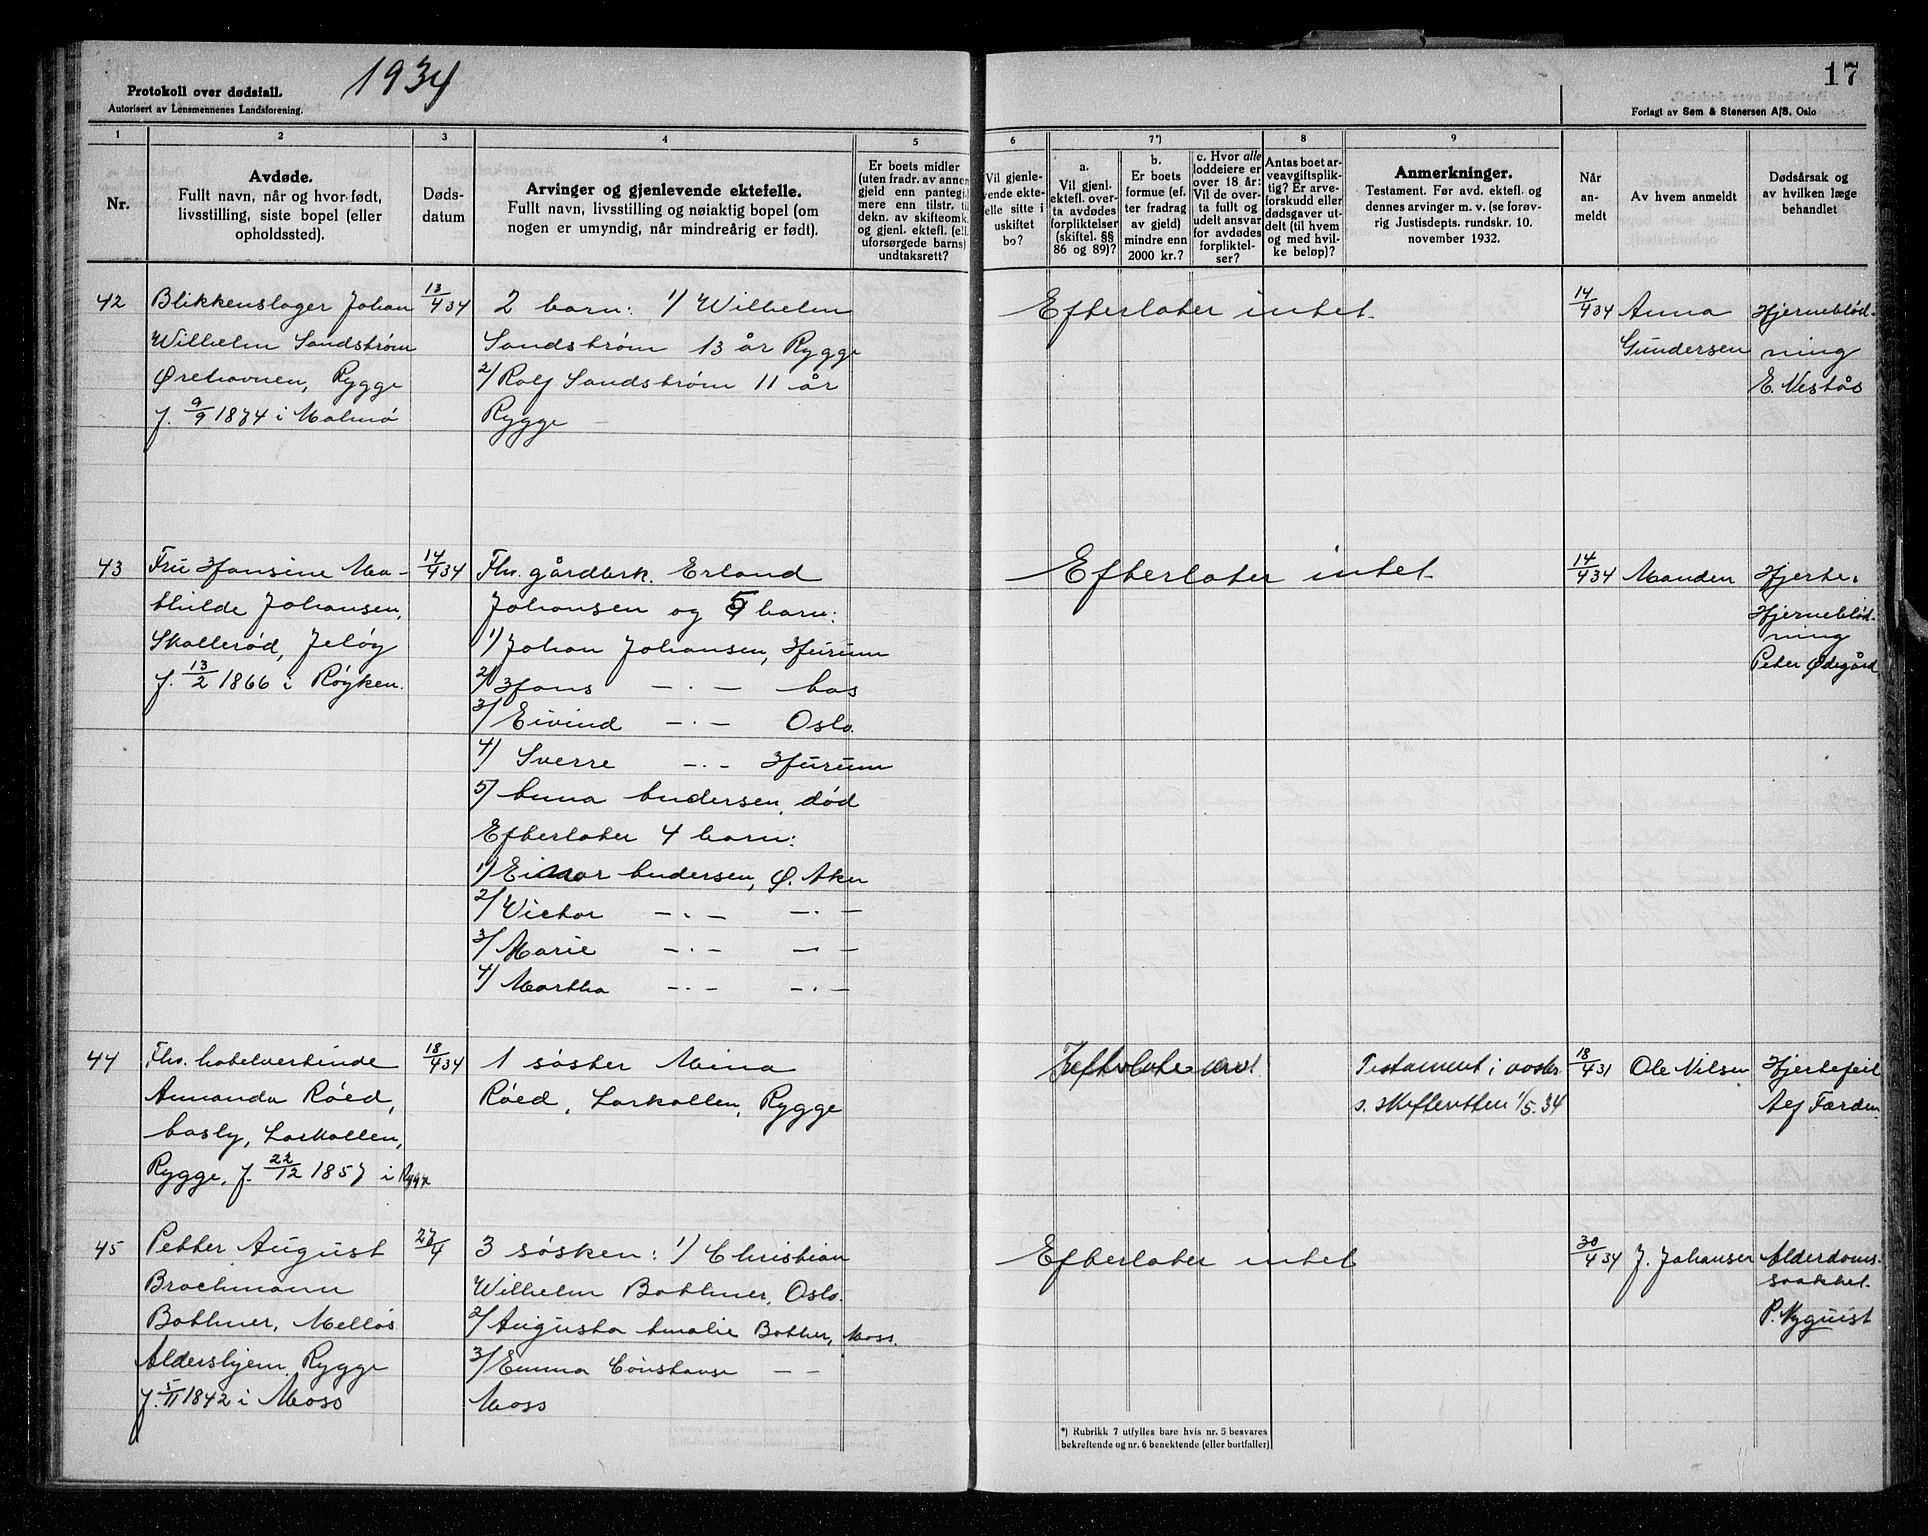 1934
17
Protokoll over dødsfall.
Autorisert av Lensmennenes Landsforening.
Forlagt av Søm & Stenersen A/S, Oslo
1 2 3 4 5 6 7*) 8 9
Nr.
Avdøde.
Fullt navn, når og hvor født,
livsstilling, siste bopel (eller
opholdssted).
Døds-
datum
Arvinger og gjenlevende ektefelle.
Fullt navn, livsstilling og nøiaktig bopel (om
nogen er umyndig, når mindreårig er født).
Er boets midler
(uten fradr. av annen
gjeld enn pantegj
mere enn tilstr. ti
dekn. av skifteomk.
og gjenl. ektefl. (el
uforsørgede barns)
undtaksrett?
Vil gjenle-
vende ekte-
elle sitte i
uskiftet
bo?
a.
Vil gjenl.
ektefl. over-
ta avdødes
forpliktelser
(skiftel. §§
86 og 89)?
b.
Er boets
formue (ef-
ter fradrag
av gjeld)
mindre enn
2000 kr.?
c. Hvor alle
loddeiere er
over 18 år:
Vil de over-
ta fullt og
udelt ansvar
for avdødes
forpliktel-
ser?
Antas boet ar-
veavgiftsplik-
tig? Er arve-
forskudd eller
dødsgaver ut-
delt (til hvem
og med hvil-
ke beløp)?
Anmerkninger.
Testament. Før avd. ektefl. og
dennes arvinger m. v. (se forøv-
rig Justisdepts. rundskr. 10.
november 1932.
Når
an-
meldt
Av hvem anmeldt
Dødsårsak og
av hvilken læge
behandlet
42 Blikkenslager Johan 13/4 34 2 barn: 1) Wilhelm Efterlater intet. 14/4 34 Anna Hjerneblød-
Wilhelm Sandstrøm Sandstrøm 13 år Rygge Gundersen ning
Ørehavnen, Rygge 2) Rolf Sandstrøm 11 år E. Vestås
f. 9/9 1874 i Malmø Rygge
43 Fru Hansine Ma- 14/4 34 Fhv. gårdbrk. Erland Efterlater intet 14/4 34 Manden Hjerte.
thilde Johansen, Johansen og 5 barn: Hjerneblød-
Skallerød, Jeløy 1) Johan Johansen, Hurum ning
f. 13/2 1866 i Røyken. 2) Hans — . — Peter Ødegård
3) Eivind — . — Oslo.
4) Sverre — . — Hurum
5) Anna Andersen, død
Efterlater 4 barn:
1) Einar Andersen, Ø. Aker
2) Victor — . — — . —
3) Marie — . — — . —
4) Martha — . — — . —
44 Fhv. hotelvertinde 18/4 34 1 søster Mina Testament i 18/4 31 Ole Nilsen Hjertefeil
Amanda Røed, Røed, Larkollen, Rygge s. skifteretten 1/5.34 Færden
Larkollen,
Rygge, f. 22/12 1857 i Rygge
45 Petter August 27/4 3 søsken: 1) Christian Efterlater intet 30/4 34 J. Johansen Alderdoms-
Brochmann Wilhelm Bothner, Oslo. svakhet.
Bothner, Melløs 2) Augusta Amalie Bothner, Moss. P. Nyquist
Aldershjem Rygge 3) Emma Constanse — —
f. 5/11 1842 i Moss Moss
*) Rubrikk 7 utfylles bare hvis nr. 5 besvares
bekreftende og nr. 6 benektende (eller bortfaller)